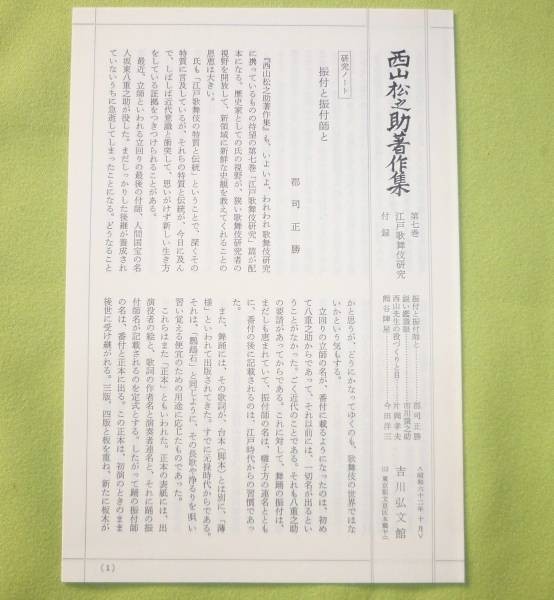 西山松之助著作集
第七巻
江戸歌舞伎研究
付録
振付と振付師と………郡司正勝
鋭い鑑識眼………市川團之助
西山先生の役づくりと目………片岡孝夫
熊谷陣屋………今田洋三
〈昭和六十二年十月〉
吉川弘文館
研究ノート
振付と振付師と
郡司正勝
『西山松之助著作集』も、いよいよ、われわれ歌舞伎研究
に携っているものの待望の第七巻「江戸歌舞伎研究」篇が配
本になる。歴史家としての氏の視野が、狭い歌舞伎研究者の
視野を開放して、新領域に新鮮な史観を教えてくれることの
恩恵は大きい。
氏も「江戸歌舞伎の特質と伝統」ということで、深くその
特質に言及しているが、それらの特質と伝統が、今日に及ん
で、しばしば近代意識と衝突して、思いがけず新しい生き方
をしている証拠をつきつけられることがある。
最近、立師といわれる立回りの最後の付師、人間国宝の名
人坂東八重之助が没した。まだしっかりした後継が養成され
ていないうちに急逝してしまったことになる。どうなること
かと思うが、どうにかなってゆくのも、歌舞伎の世界ではな
いかという気もする。
立回りの立師の名が、番付に載るようになったのは、初め
て八重之助からであって、それ以前には、一切名が出るとい
うことがなかった。ごく近代のことである。それも八重之助
の要請があってからである。これに対して、舞踊の振付は、
まだしも恵まれていて、振付師の名は、囃子方の連名ととも
に、番付の後に記載されるのは、江戸時代からの習慣であっ
た。
また、舞踊には、その歌詞が、台本（脚本）とは別に、「薄
様」といわれて出版されてきた。すでに元禄時代からである。
それは、「鸚鵡石」と同じように、その長歌や浄るりを唄い
習い覚える便宜のための用途に応じたものであった。
これらはまた「正本」ともいわれた。正本の表紙には、出
演役者の絵と、歌詞の作者名と演奏者連名と、それに踊の振
付師名が記載されるのを定式とする。したがって踊の振付師
の名は、番付と正本に出る。この正本は、初演のときのまま
後世に受け継がれる。三版、四版と板を重ね、新たに板木が
(1)